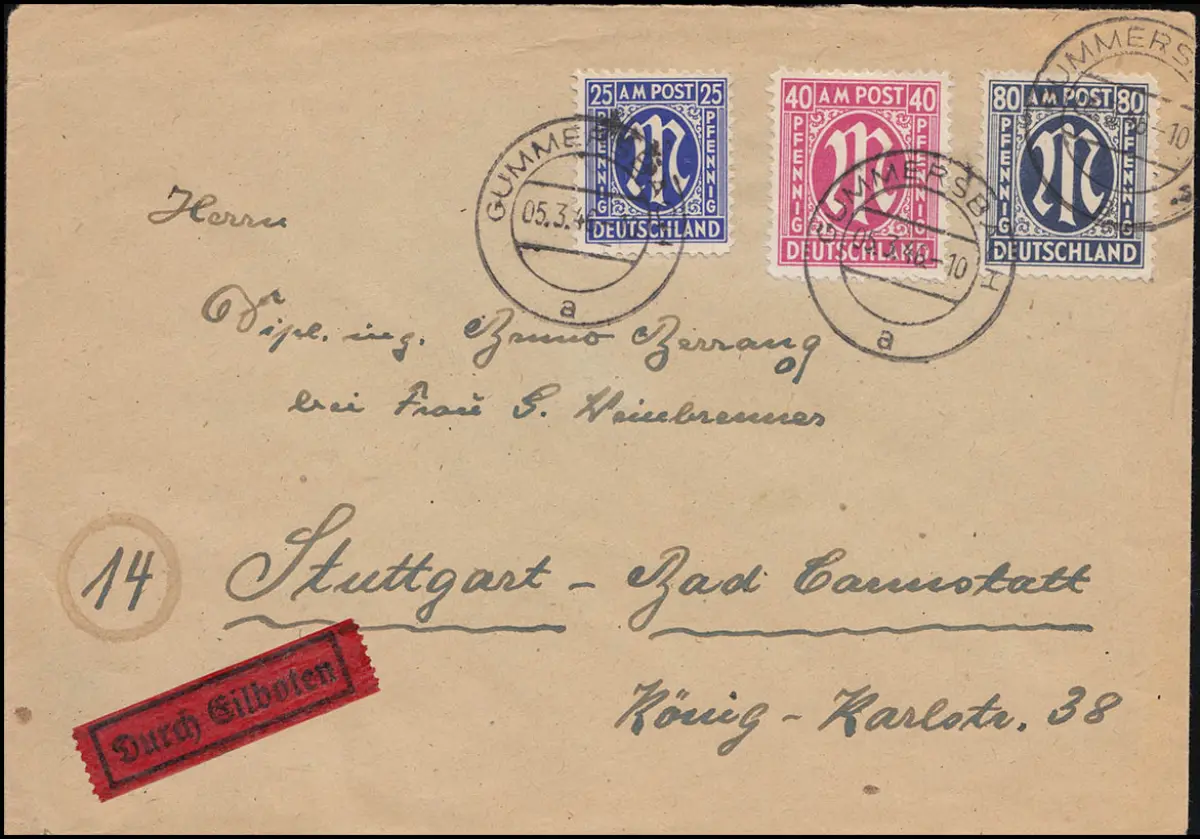 25 AM POST 25
PFENNIG PFENNIG
DEUTSCHLAND
40 AM POST 40
PFENNIG PFENNIG
DEUTSCHLAND
80 AM POST 80
PFENNIG PFENNIG
DEUTSCHLAND
GUMMERSBACH
05.3.46
a
GUMMERSB
05.3.46-10
a
GUMMERS
-10
Herrn
Dipl. ing. Bruno Berrang
bei Frau G. Weinbrenner
14 Stuttgart - Bad Cannstatt
König-Karlstr. 38
Durch Eilboten